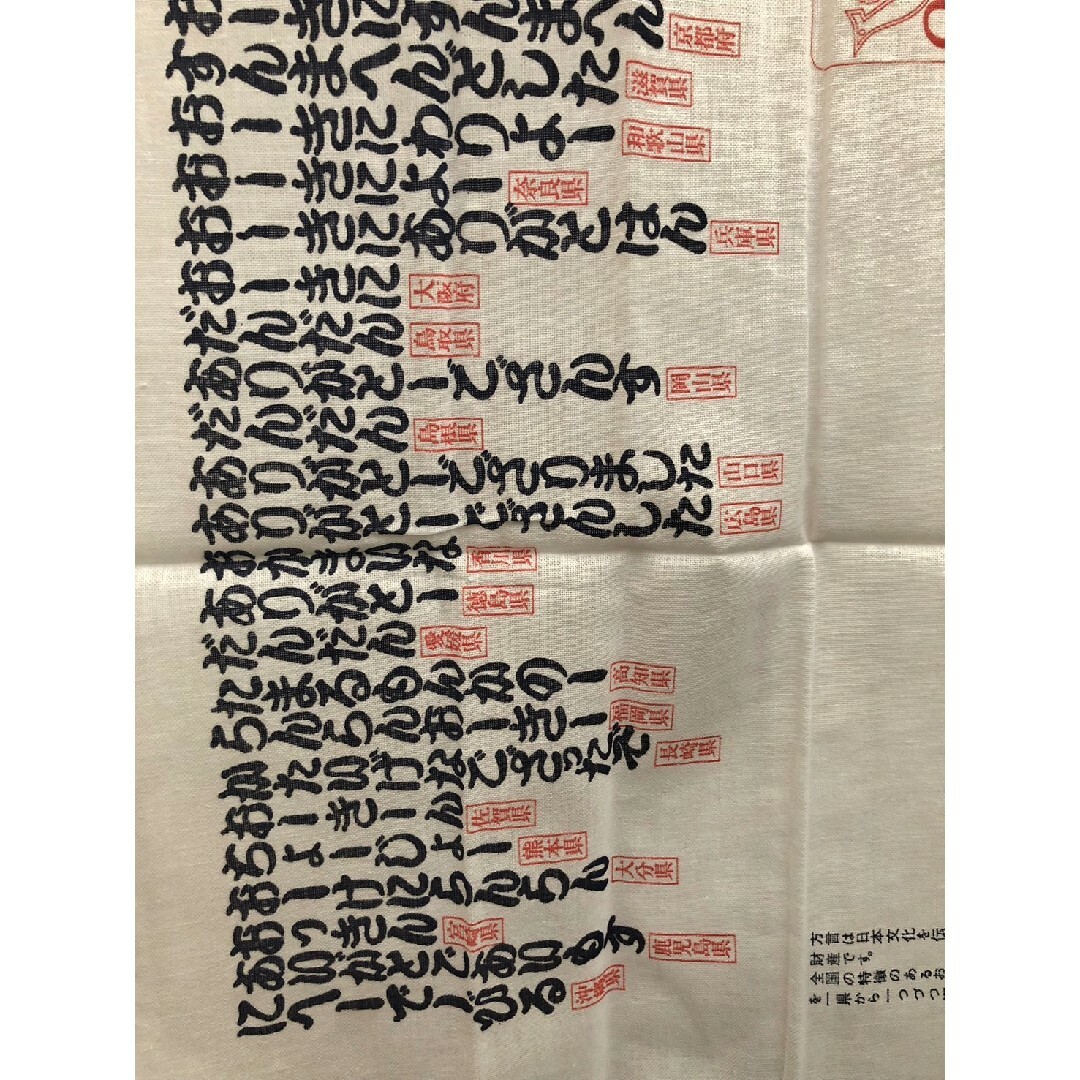 おーきにすんまへん 京都府
すんまへんどした 滋賀県
おーきにわりよー 和歌山県
おーきによー 奈良県
おーきにありがとはん 兵庫県
おーきに 大阪府
だんだん 鳥取県
ありがとーでござんす 岡山県
だんだん 島根県
ありがとーでござりました 山口県
ありがとーでござんした 広島県
おかまいな 香川県
ありがとー 徳島県
だんだん 愛媛県
たまるもんかのー 高知県
らんらんおーきー 福岡県
かたいけなでござったぞ 長崎県
おーきーん 佐賀県
ちょーじょー 熊本県
おーけにらんらん 大分県
おおっきん 宮崎県
あいがとであいもす 鹿児島県
にへーでーびる 沖縄県
方言は日本文化を伝
財産です。
全国の特徴のあるお
を一県から一つづつ